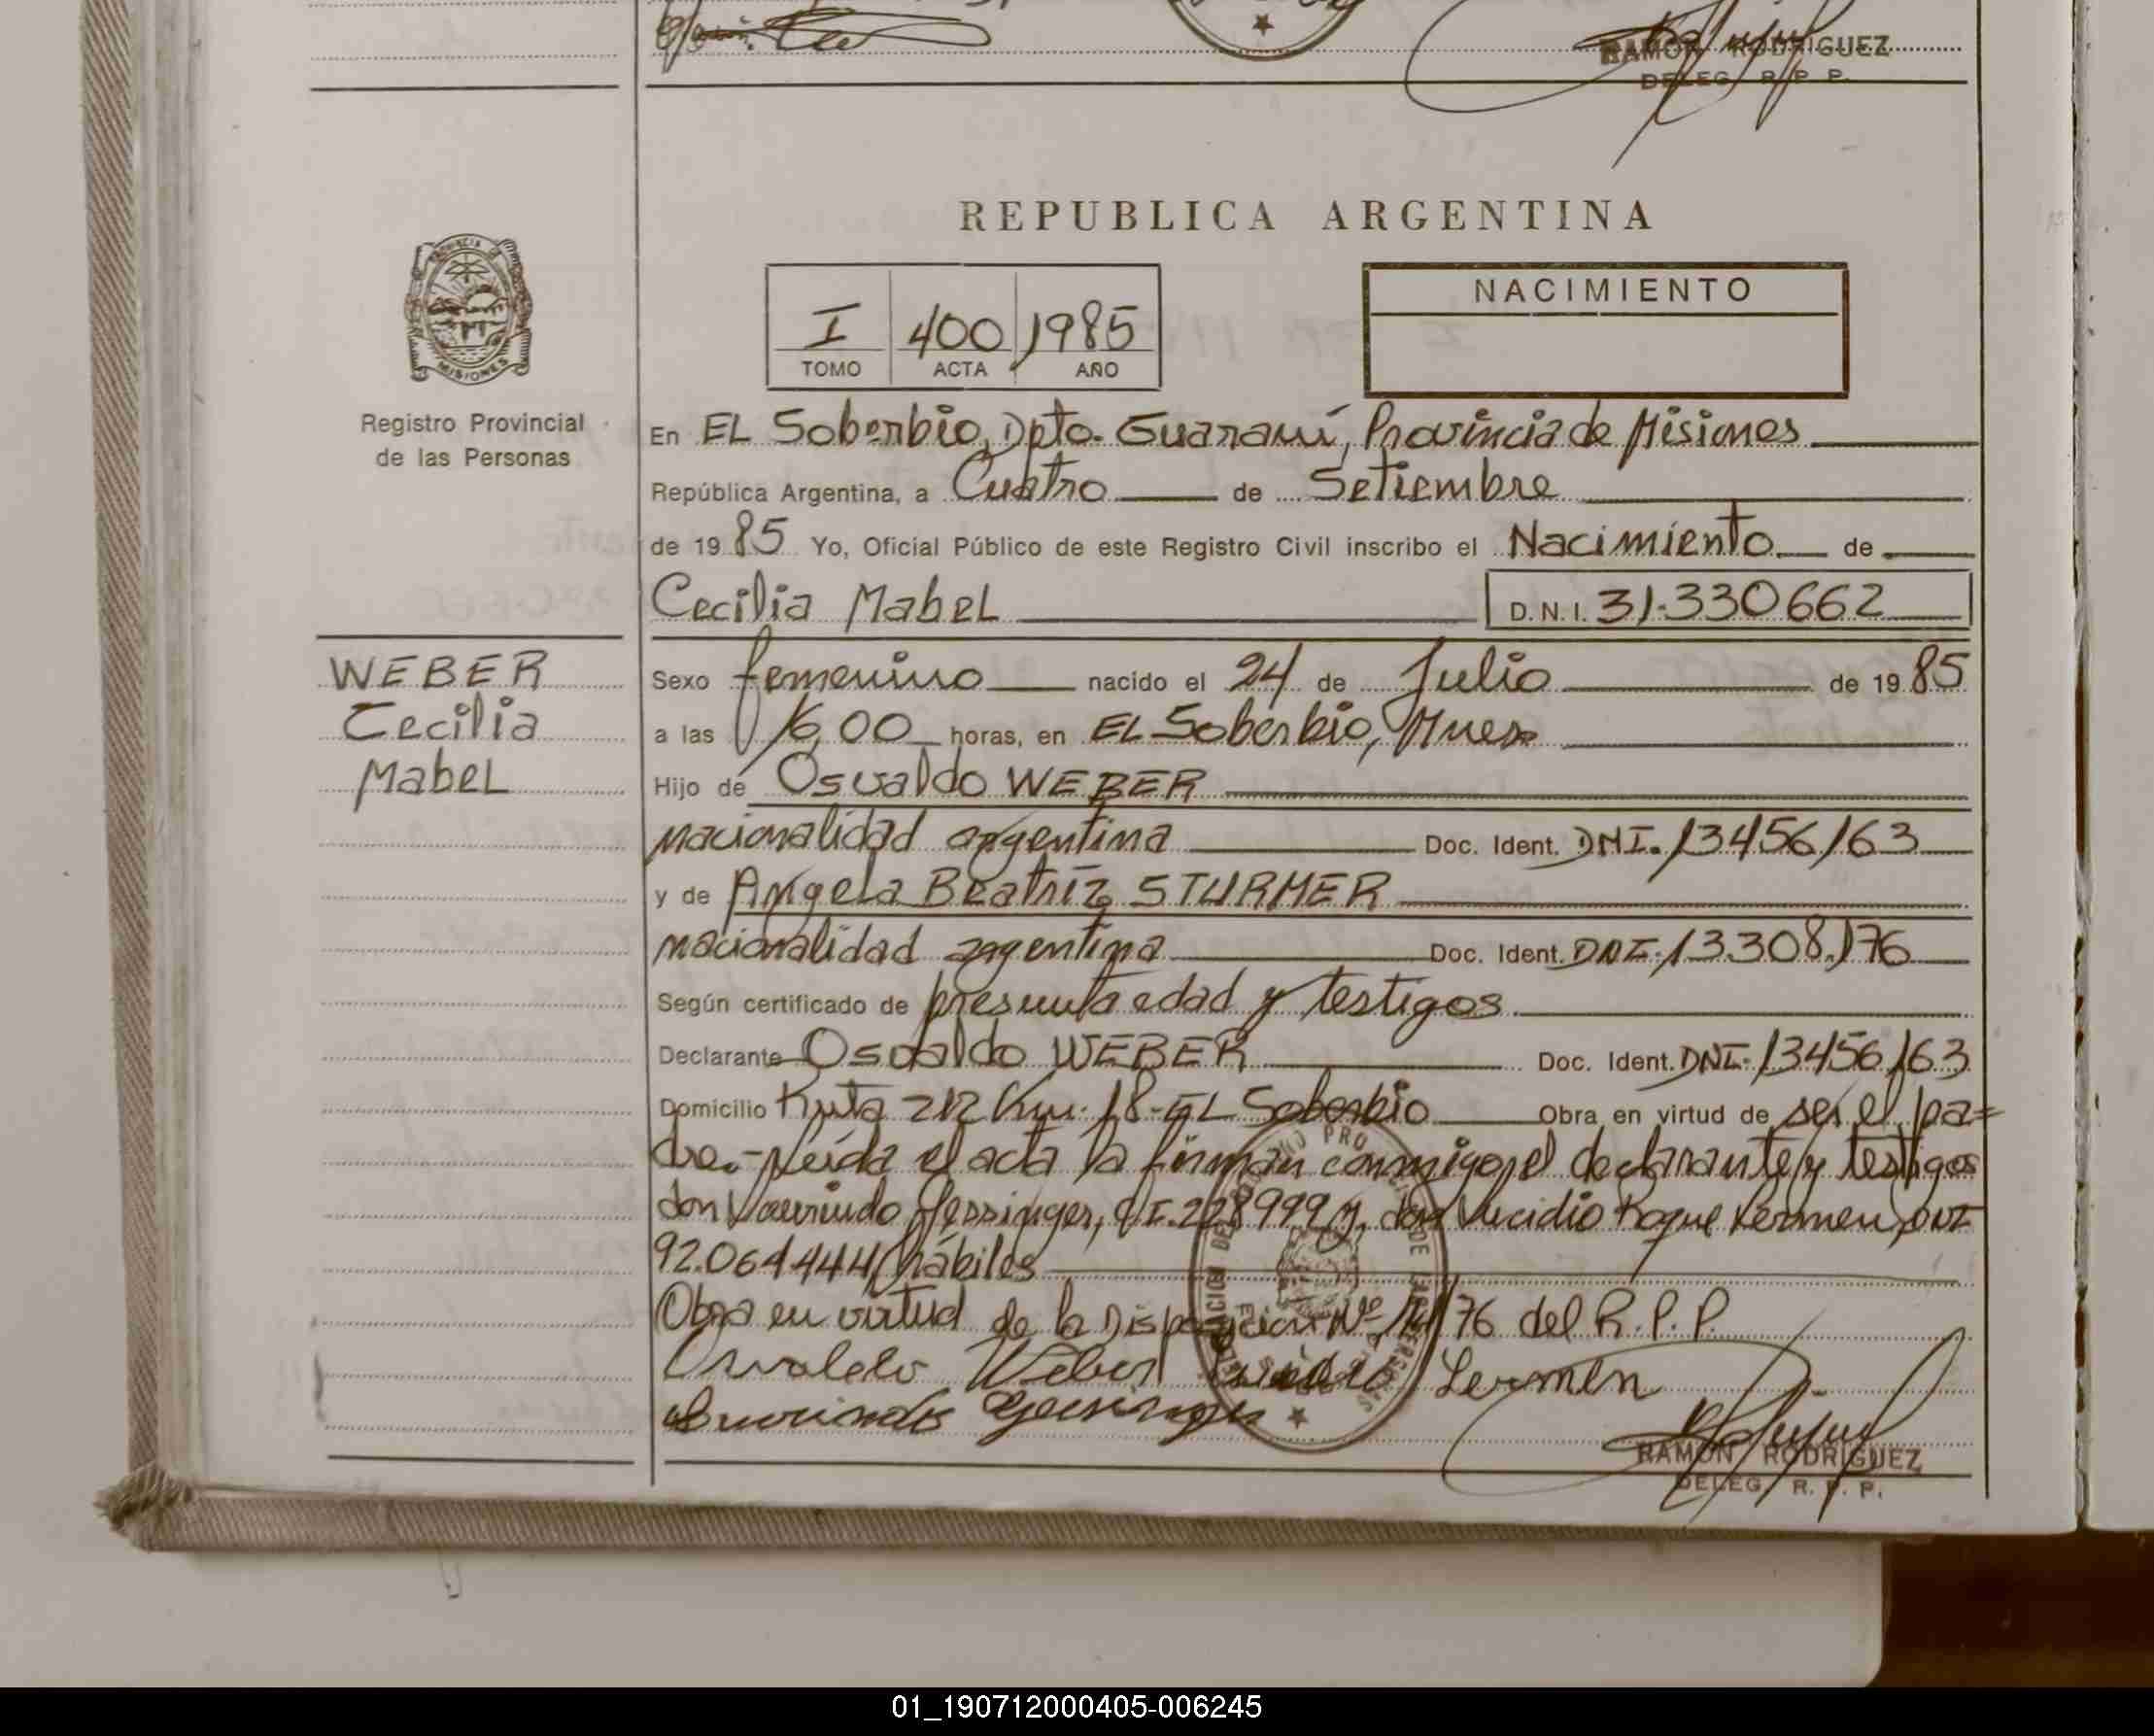 RAMON RODRIGUEZ
DELEG. R. P. P.
REPUBLICA ARGENTINA
PROVINCIA DE
MISIONES
Registro Provincial
de las Personas
I 400 1985
TOMO ACTA AÑO
NACIMIENTO
En EL Soberbio, Dpto. Guaraní, Provincia de Misiones
República Argentina, a Cuatro de Setiembre
de 1985 Yo, Oficial Público de este Registro Civil inscribo el Nacimiento de
Cecilia Mabel D.N.I. 31.330662
WEBER
Cecilia
Mabel
Sexo femenino nacido el 24 de Julio de 1985
a las 16,00 horas, en EL Soberbio, Mnes
Hijo de Osvaldo WEBER
nacionalidad argentina Doc. Ident. DNI. 13456163
y de Angela Beatriz STURMER
nacionalidad argentina Doc. Ident. DNI. 13.308.176
Según certificado de presunta edad y testigos
Declarante Osvaldo WEBER Doc. Ident. DNI. 13456163
Domicilio Ruta 212 Km. 18-EL Soberbio Obra en virtud de ser el pa=
dre.-Leída el acta la firman conmigo, el declarante y testigos
don Laurindo C.I. 228999 y don Roque Lermen, DNI
92.064444 hábiles
Obra en virtud de la Disposición Nº 14/76 del R.P.P.
Osvaldo Weber Lermen
RAMON RODRIGUEZ
DELEG. R. P. P.
01_190712000405-006245